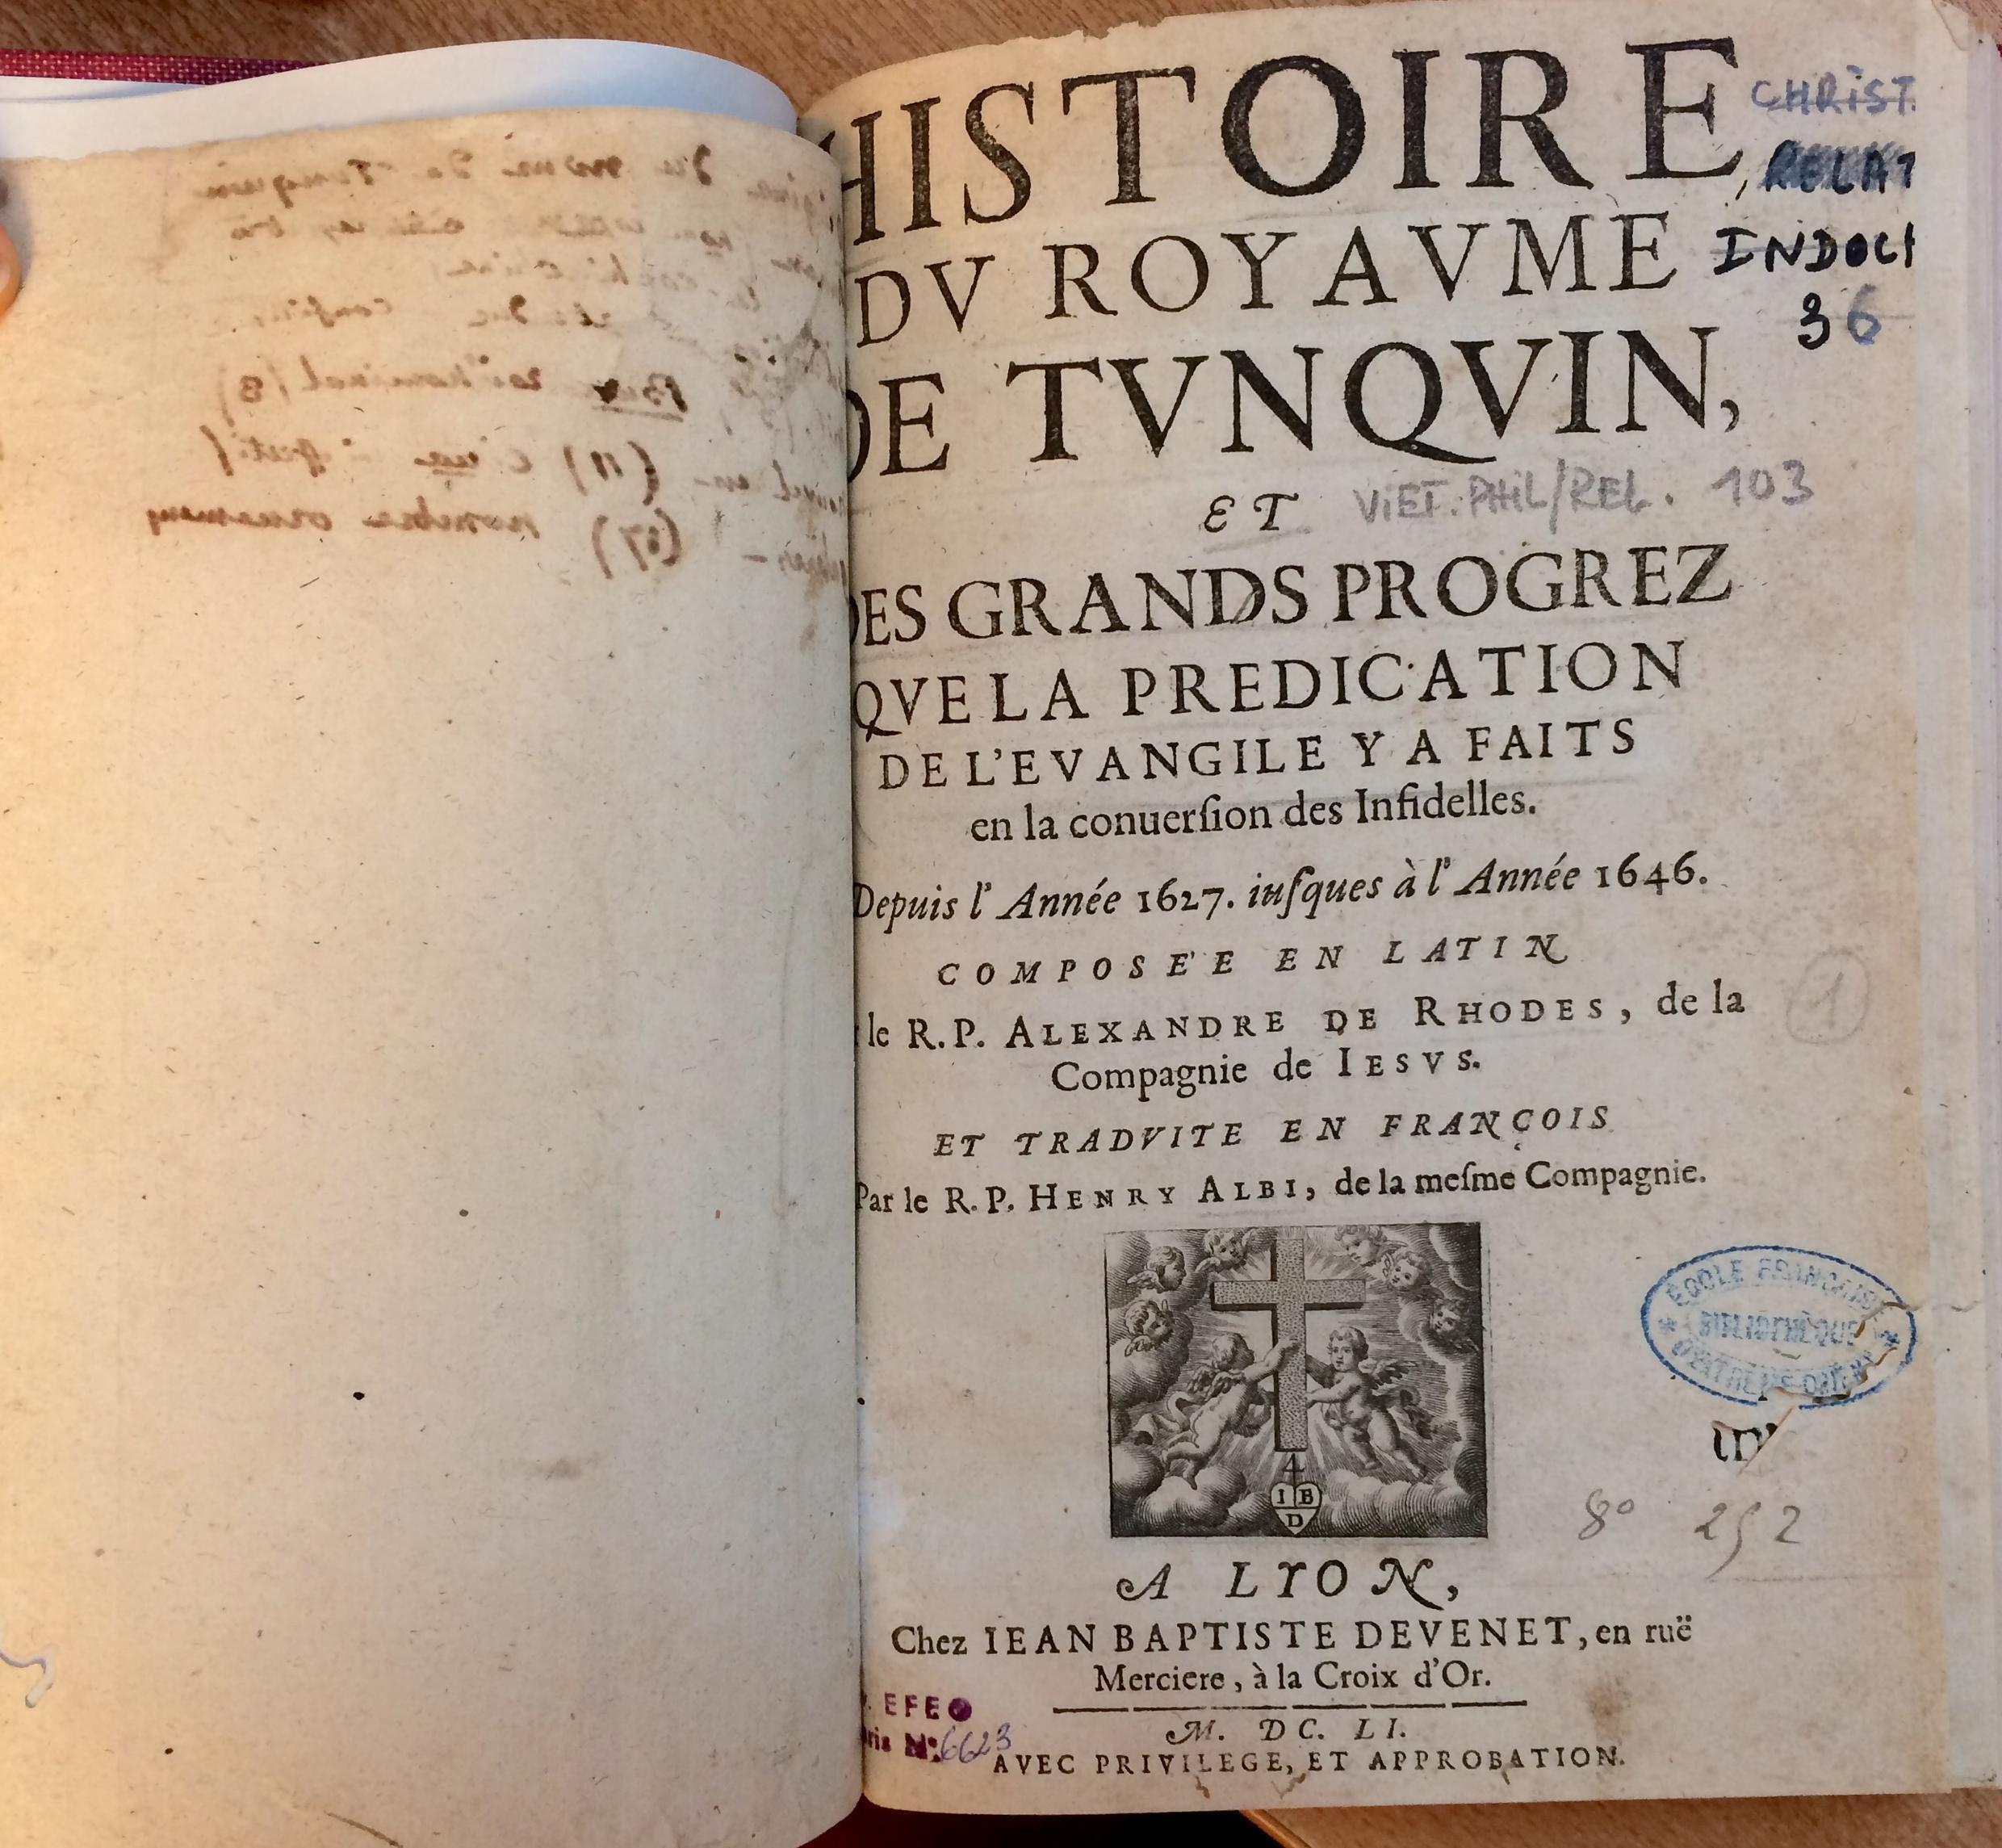 HISTOIRE
DV ROYAVME
DE TVNQVIN,
ET
DES GRANDS PROGREZ
QVE LA PREDICATION
DE L'EVANGILE Y A FAITS
en la conuerſion des Infidelles.
Depuis l'Année 1627. iuſques à l'Année 1646.
COMPOSE'E EN LATIN
le R.P. ALEXANDRE DE RHODES, de la
Compagnie de IESVS.
ET TRADVITE EN FRANÇOIS
Par le R.P. HENRY ALBI, de la meſme Compagnie.
I B
D
A LYON,
Chez IEAN BAPTISTE DEVENET, en ruë
Merciere, à la Croix d'Or.
M. DC. LI.
AVEC PRIVILEGE, ET APPROBATION.
CHRIST.
RELAT
INDOCH
36
VIET. PHIL/REL. 103
1
ÉCOLE FRANÇAISE
BIBLIOTHÈQUE
D'EXTRÊME-ORIENT
8° 252
EFEO
N° 6623